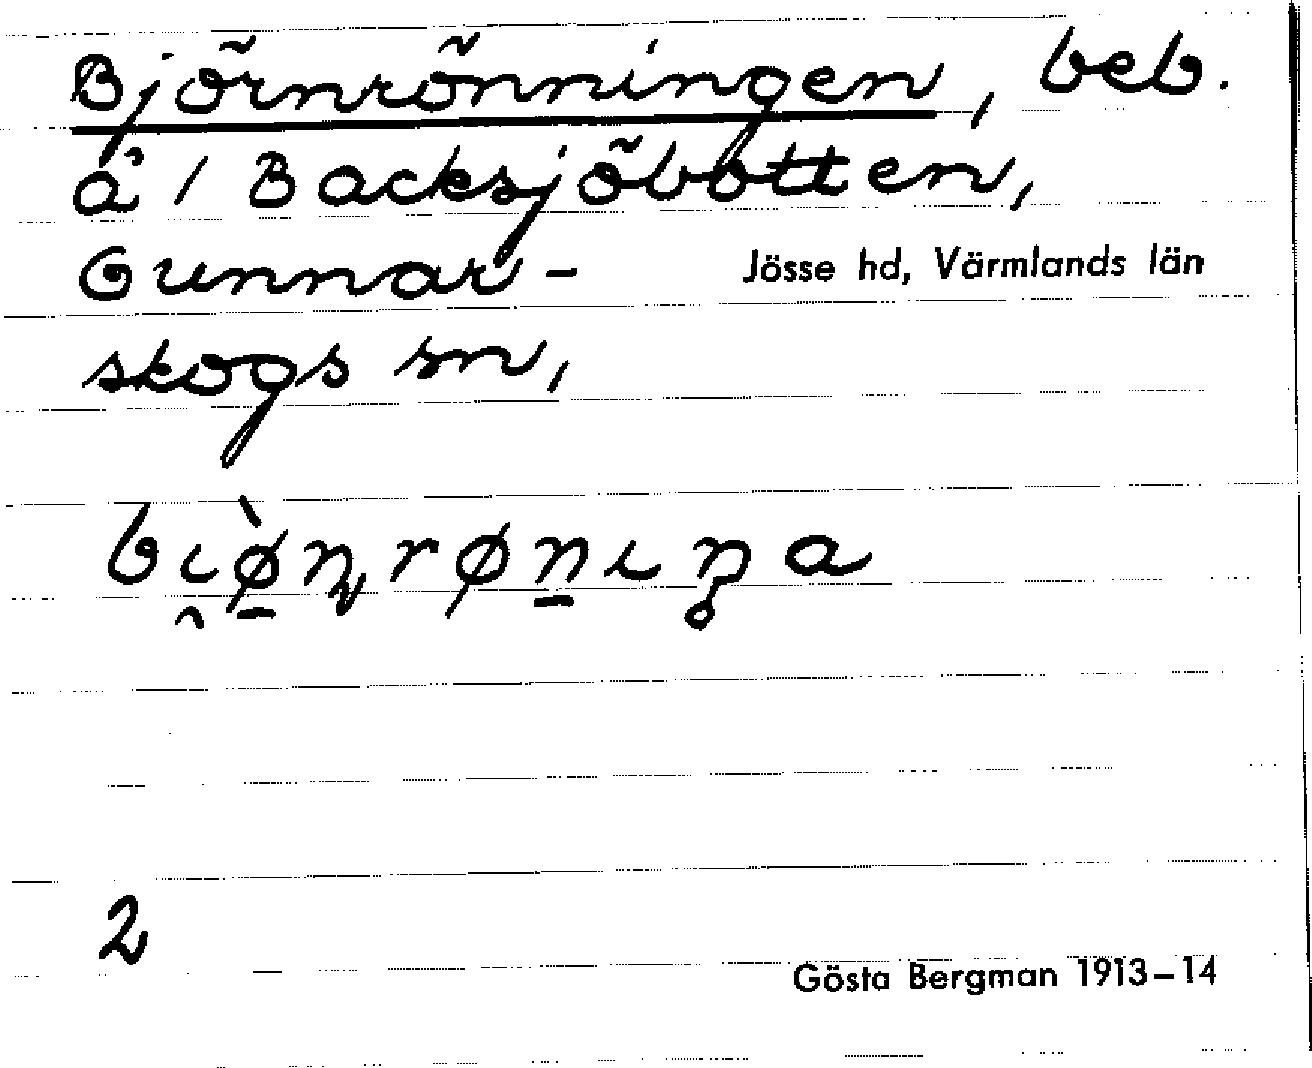 Björnrönningen, beb.
å 1 Backsjöbotten,
Gunnar- Jösse hd, Värmlands län
skogs sn,
bi̯ø̠̀ɳrøn̠ıŋa
2
Gösta Bergman 1913–14